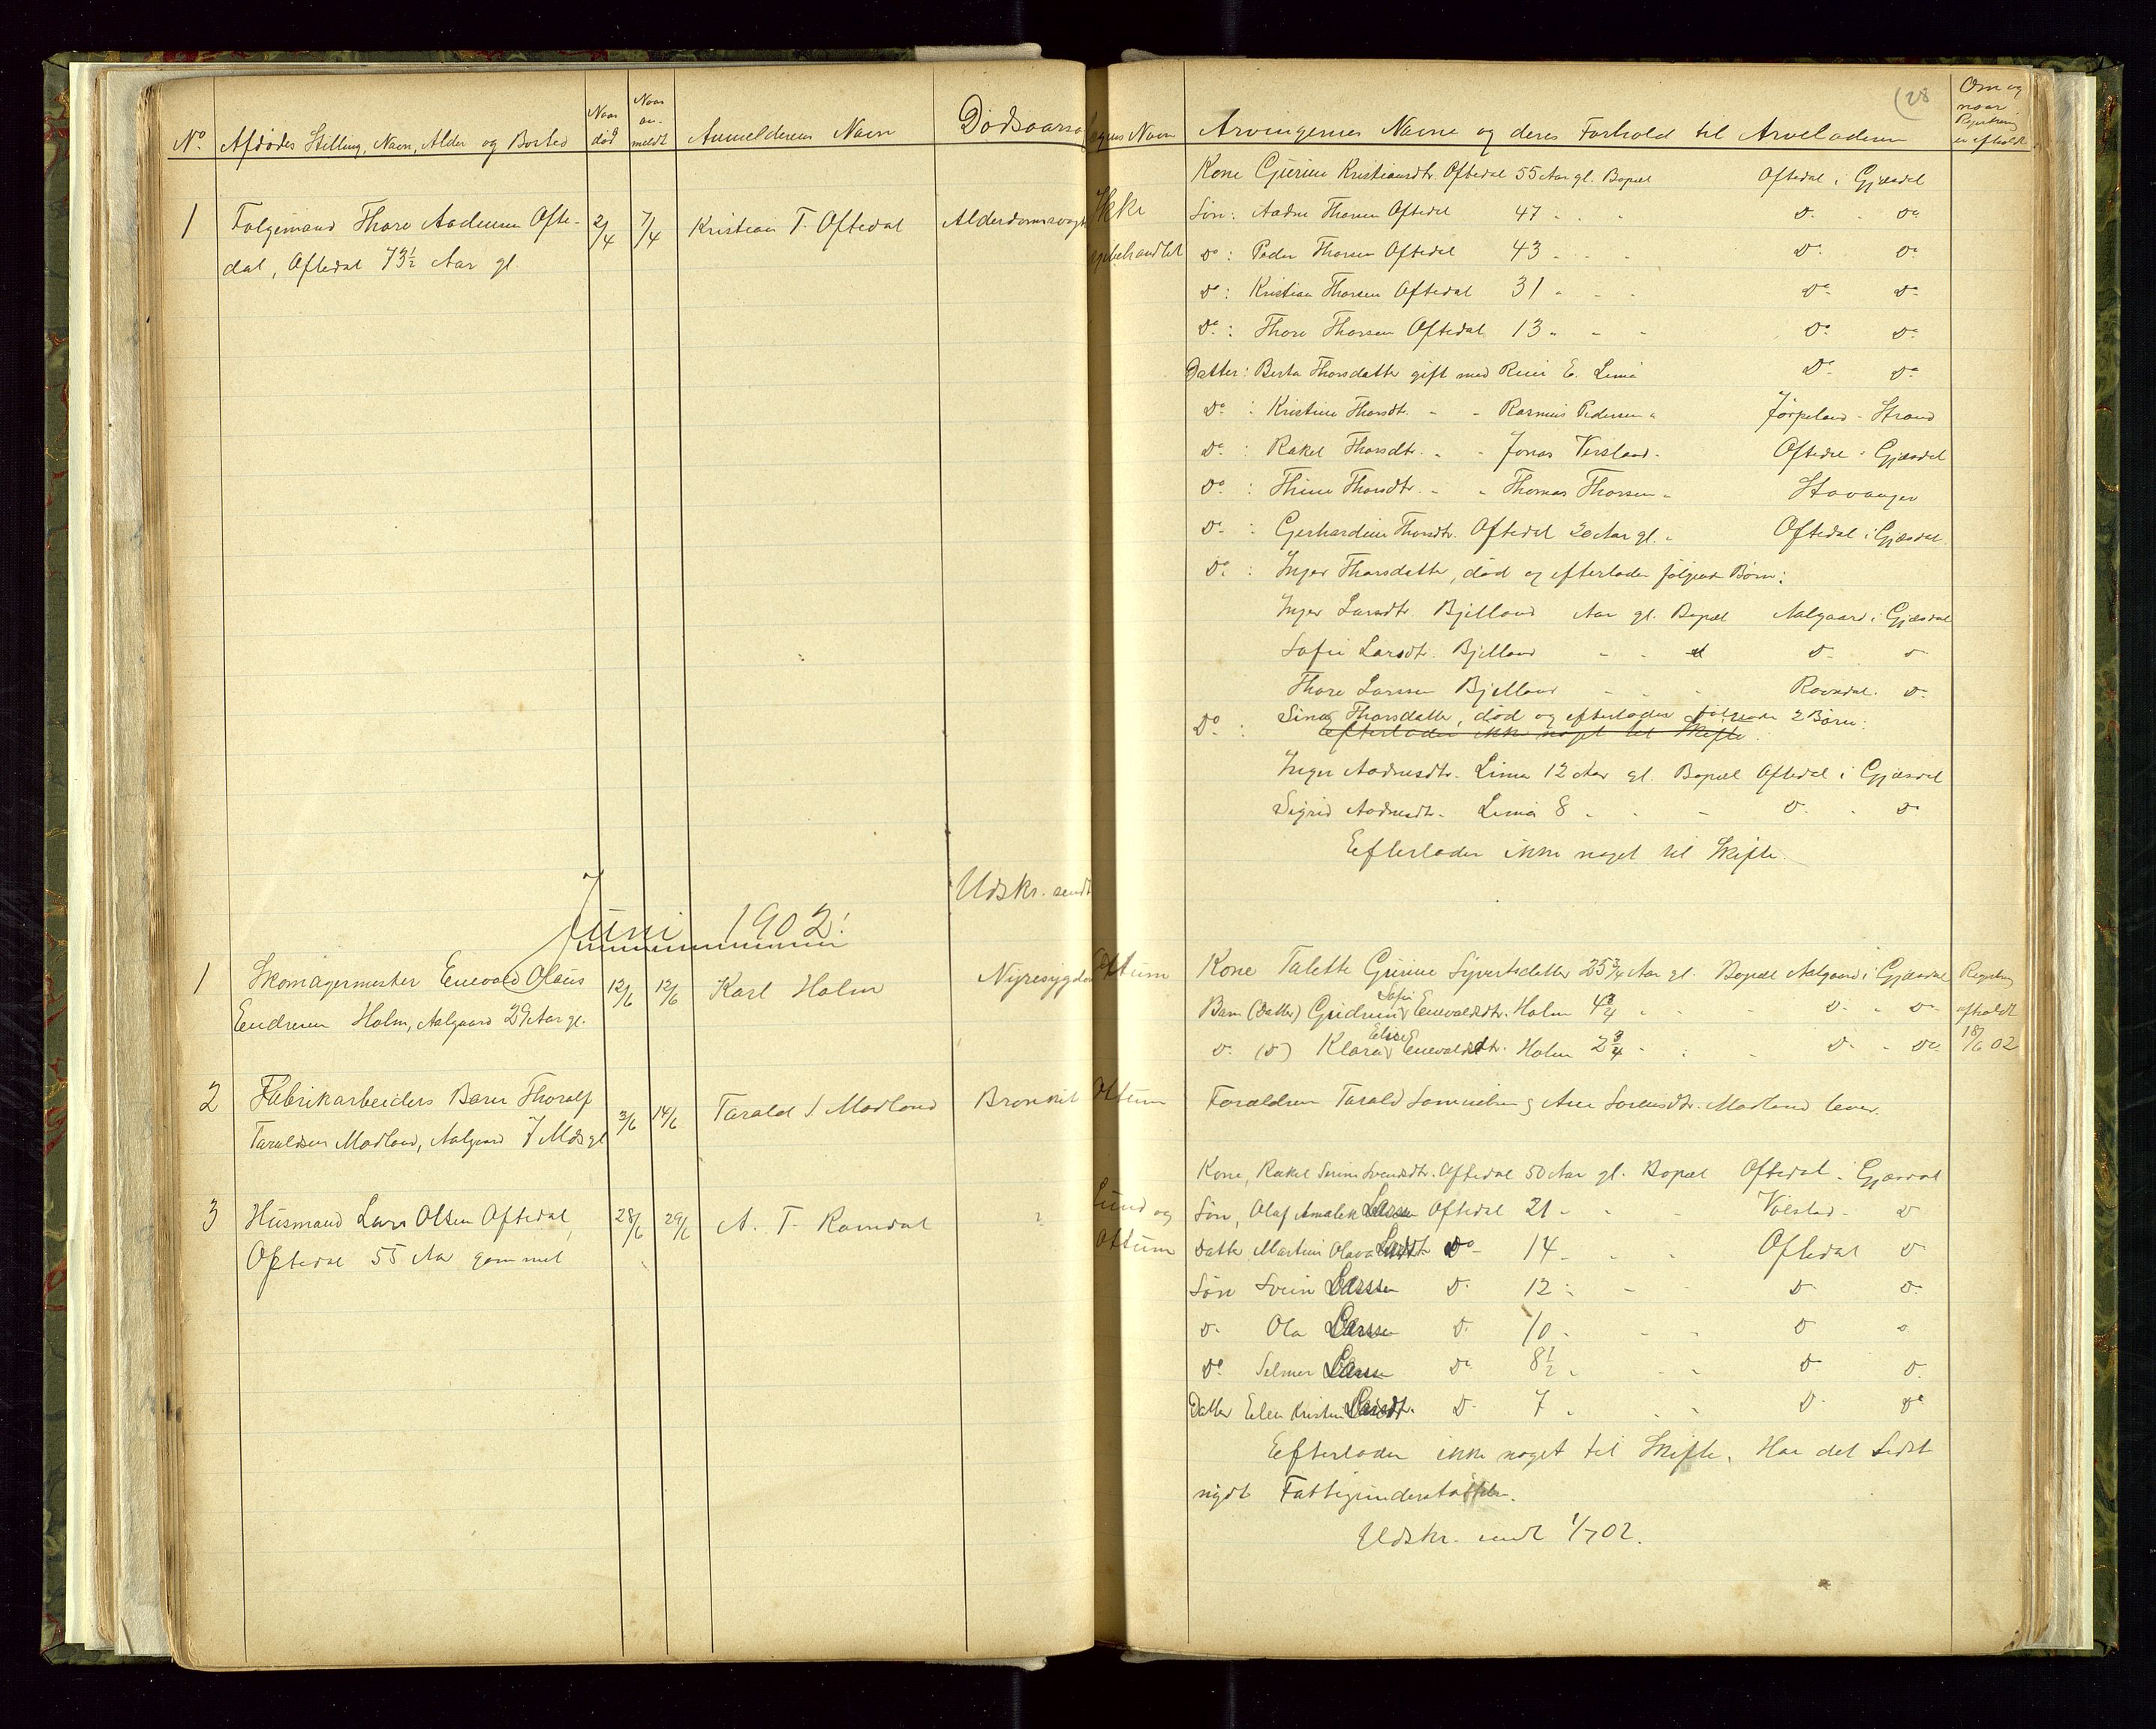 No. Afdødes Stilling, Navn, Alder og Bosted
Naar død
Naar an-meldt
Anmelderens Navn
Dødsaarsa
egens Navn
Arvingernes Navne og deres Forhold til Arveladeren
Om og naar Registrering er afholdt
(28
1 Folgemand Thore Aadnesen Ofte-
dal, Oftedal 73½ Aar gl
2/4 7/4 Kristian T. Oftedal Alderdomssvagh Ikke
lægebehandlet
Kone Gurine Kristiansdtr. Oftedal 55 Aar gl. Bopæl Oftedal i Gjæsdal
Søn: Aadne Thorsen Oftedal 47 - - - Do. - Do
Do: Peder Thorsen Oftedal 43 - - - Do. Do
Do: Kristian Thorsen Oftedal 31 - - - Do. Do.
Do: Thore Thorsen Oftedal 13 - - - Do. Do.
Datter: Berta Thorsdatter gift med Reier E. Lima Do. Do.
Do. : Kristine Thorsdt. - - Rasmus Pedersen " Jørpeland - Strand
Do. : Rakel Thorsdtr. - - Jonas Versland - Oftedal i Gjæsdal
Do : Thine Thorsdtr. - " Thomas Thorsen - Stavanger
Do. : Gerhardine Thorsdtr. Oftedal 20 Aar gl. " Oftedal i Gjæsdal
Do. : Inger Thorsdatter, død og efterlader følgende Børn:
Inger Larsdtr. Bjelland Aar gl. Bopæl Aalgaard i Gjæsdal
Sofie Larsdtr. Bjelland - - - D. D
Thore Larssen Bjelland - - - Ravndal. D.
Do : Sina Thorsdatter, død og efterlader følgende 2 Børn:
Efterlader ikke noget til Skifte.
Inger Aadnesdtr. Lima 12 Aar gl. Bopæl Oftedal i Gjæsdal
Sigrid Aadnesdtr. Lima 8 - - - D. - D
Efterlader ikke noget til Skifte.
Udskr. sendt
Juni 1902:
1 Skomagermester Enevald Olaus
Endresen Holm, Aalgaard 29 Aar gl.
12/6 12/6 Karl Holm Nyresygdom Oftum
Kone Talette Gurine Syvertsdatter 25¾ Aar gl. Bopæl Aalgaard i Gjæsdal
Barn (Datter) Gudrun Sofie Enevaldsdtr. Holm 4¾ " - - D. " D.
D. (D) Klara Elise Enevaldsdtr. Holm 2¾ - : - D. - Do
Registrering
afholdt
18/6 02
2 Fabrikarbeiders Barn Thoralf
Taraldsen Madland, Aalgaard 7 Mds gl
3/6 14/6 Tarald S Madland Bronkit Oftum
Forældren Tarald Samuelsen og Ane Sørensdtr. Madland lever.
3 Husmand Lars Olsen Oftedal,
Oftedal 55 Aar gammel
28/6 29/6 A. T. Ravndal ? Lund og
Oftum
Kone, Rakel Serine Svendsdtr. Oftedal 50 Aar gl. Bopæl Oftedal i Gjæsdal
Søn, Olaf Amalek Larssen Oftedal 21 - - - Volstad - D
Datter Martine Olava Larsdtr Do - 14 - - - Oftedal D
Søn Svein Larssen D. 12 : - - D. D.
D. Ola Larssen D. 10 - - - D D
Do Selmer Larssen Do 8½ - - - D. D.
Datter Elen Kristine Larsdtr. D. 7 - - - D. Do
Efterlader ikke noget til Skifte. Har det sidst
nydt Fattigunderstøttelse.
Udskr. sendt 1/7 02.